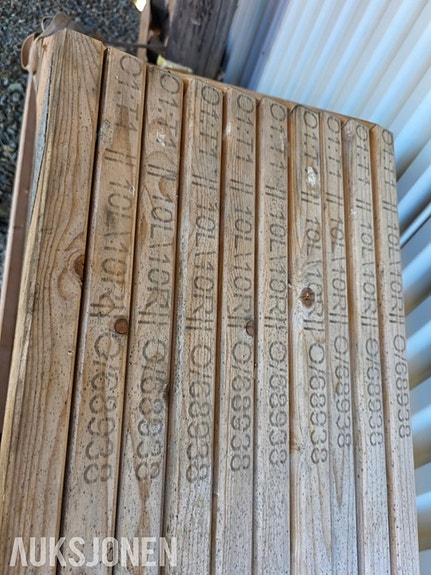 O1:T1 || 10LV10R|| O/68938
O1:T1 || 10LV10R|| O/68938
O1:T1 || 10LV10R|| O/68938
O1:T1 || 10LV10R|| O/68938
O1:T1 || 10LV10R|| O/68938
O1:T1 || 10LV10R|| O/68938
O1:T1 || 10LV10R|| O/68938
O1:T1 || 10LV10R|| O/68938
O/68938
AUKSJONEN